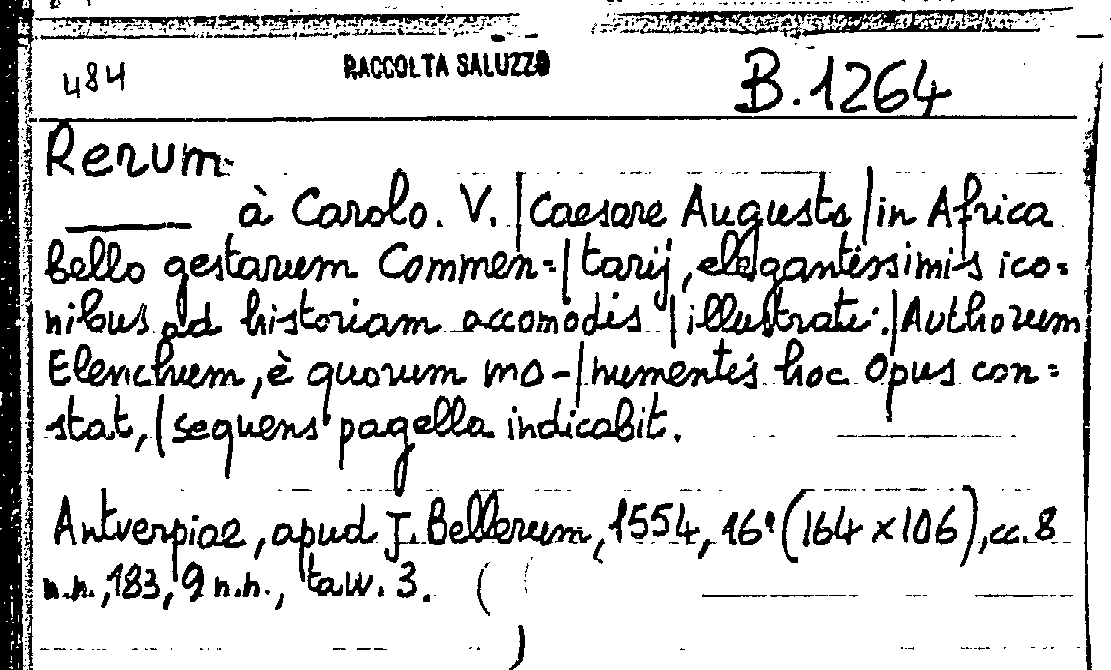 484 RACCOLTA SALUZZO B.1264
Rerum
à Carolo. V. | Caesare Augusto | in Africa
bello gestarum Commen=| tarij, elegantissimis ico=
nibus ad historiam accomodis | illustrati. | Authorum
Elenchum, è quorum mo-| numentis hoc Opus con=
stat, | sequens pagella indicabit.
Antverpiae, apud J. Bellerum, 1554, 16° (164 x 106), cc. 8
n.n., 183, 9 n.n., tavv. 3.